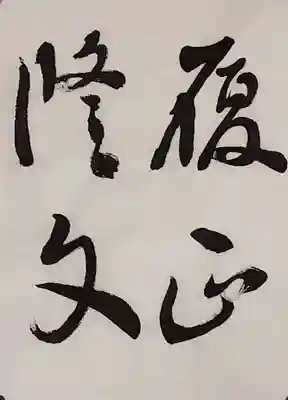 履正
修文